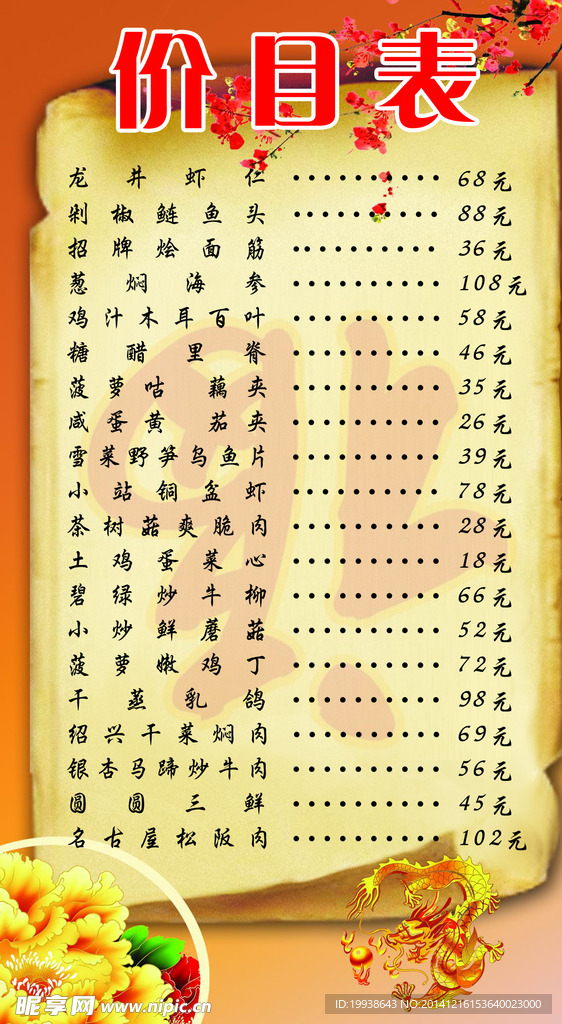 价目表
龙井虾仁 •••••••••• 68元
剁椒鲢鱼头 •••••••••• 88元
招牌烩面筋 •••••••••• 36元
葱焖海参 •••••••••• 108元
鸡汁木耳百叶 •••••••••• 58元
糖醋里脊 •••••••••• 46元
菠萝咕 藕夹 •••••••••• 35元
咸蛋黄 茄夹 •••••••••• 26元
雪菜野笋乌鱼片 •••••••••• 39元
小站铜盆虾 •••••••••• 78元
茶树菇爽脆肉 •••••••••• 28元
土鸡蛋菜心 •••••••••• 18元
碧绿炒牛柳 •••••••••• 66元
小炒鲜蘑菇 •••••••••• 52元
菠萝嫩鸡丁 •••••••••• 72元
干蒸乳鸽 •••••••••• 98元
绍兴干菜焖肉 •••••••••• 69元
银杏马蹄炒牛肉 •••••••••• 56元
圆圆三鲜 •••••••••• 45元
名古屋松阪肉 •••••••••• 102元
福
昵享网 www.nipic.cn
ID:19938643 NO:20141216153640023000